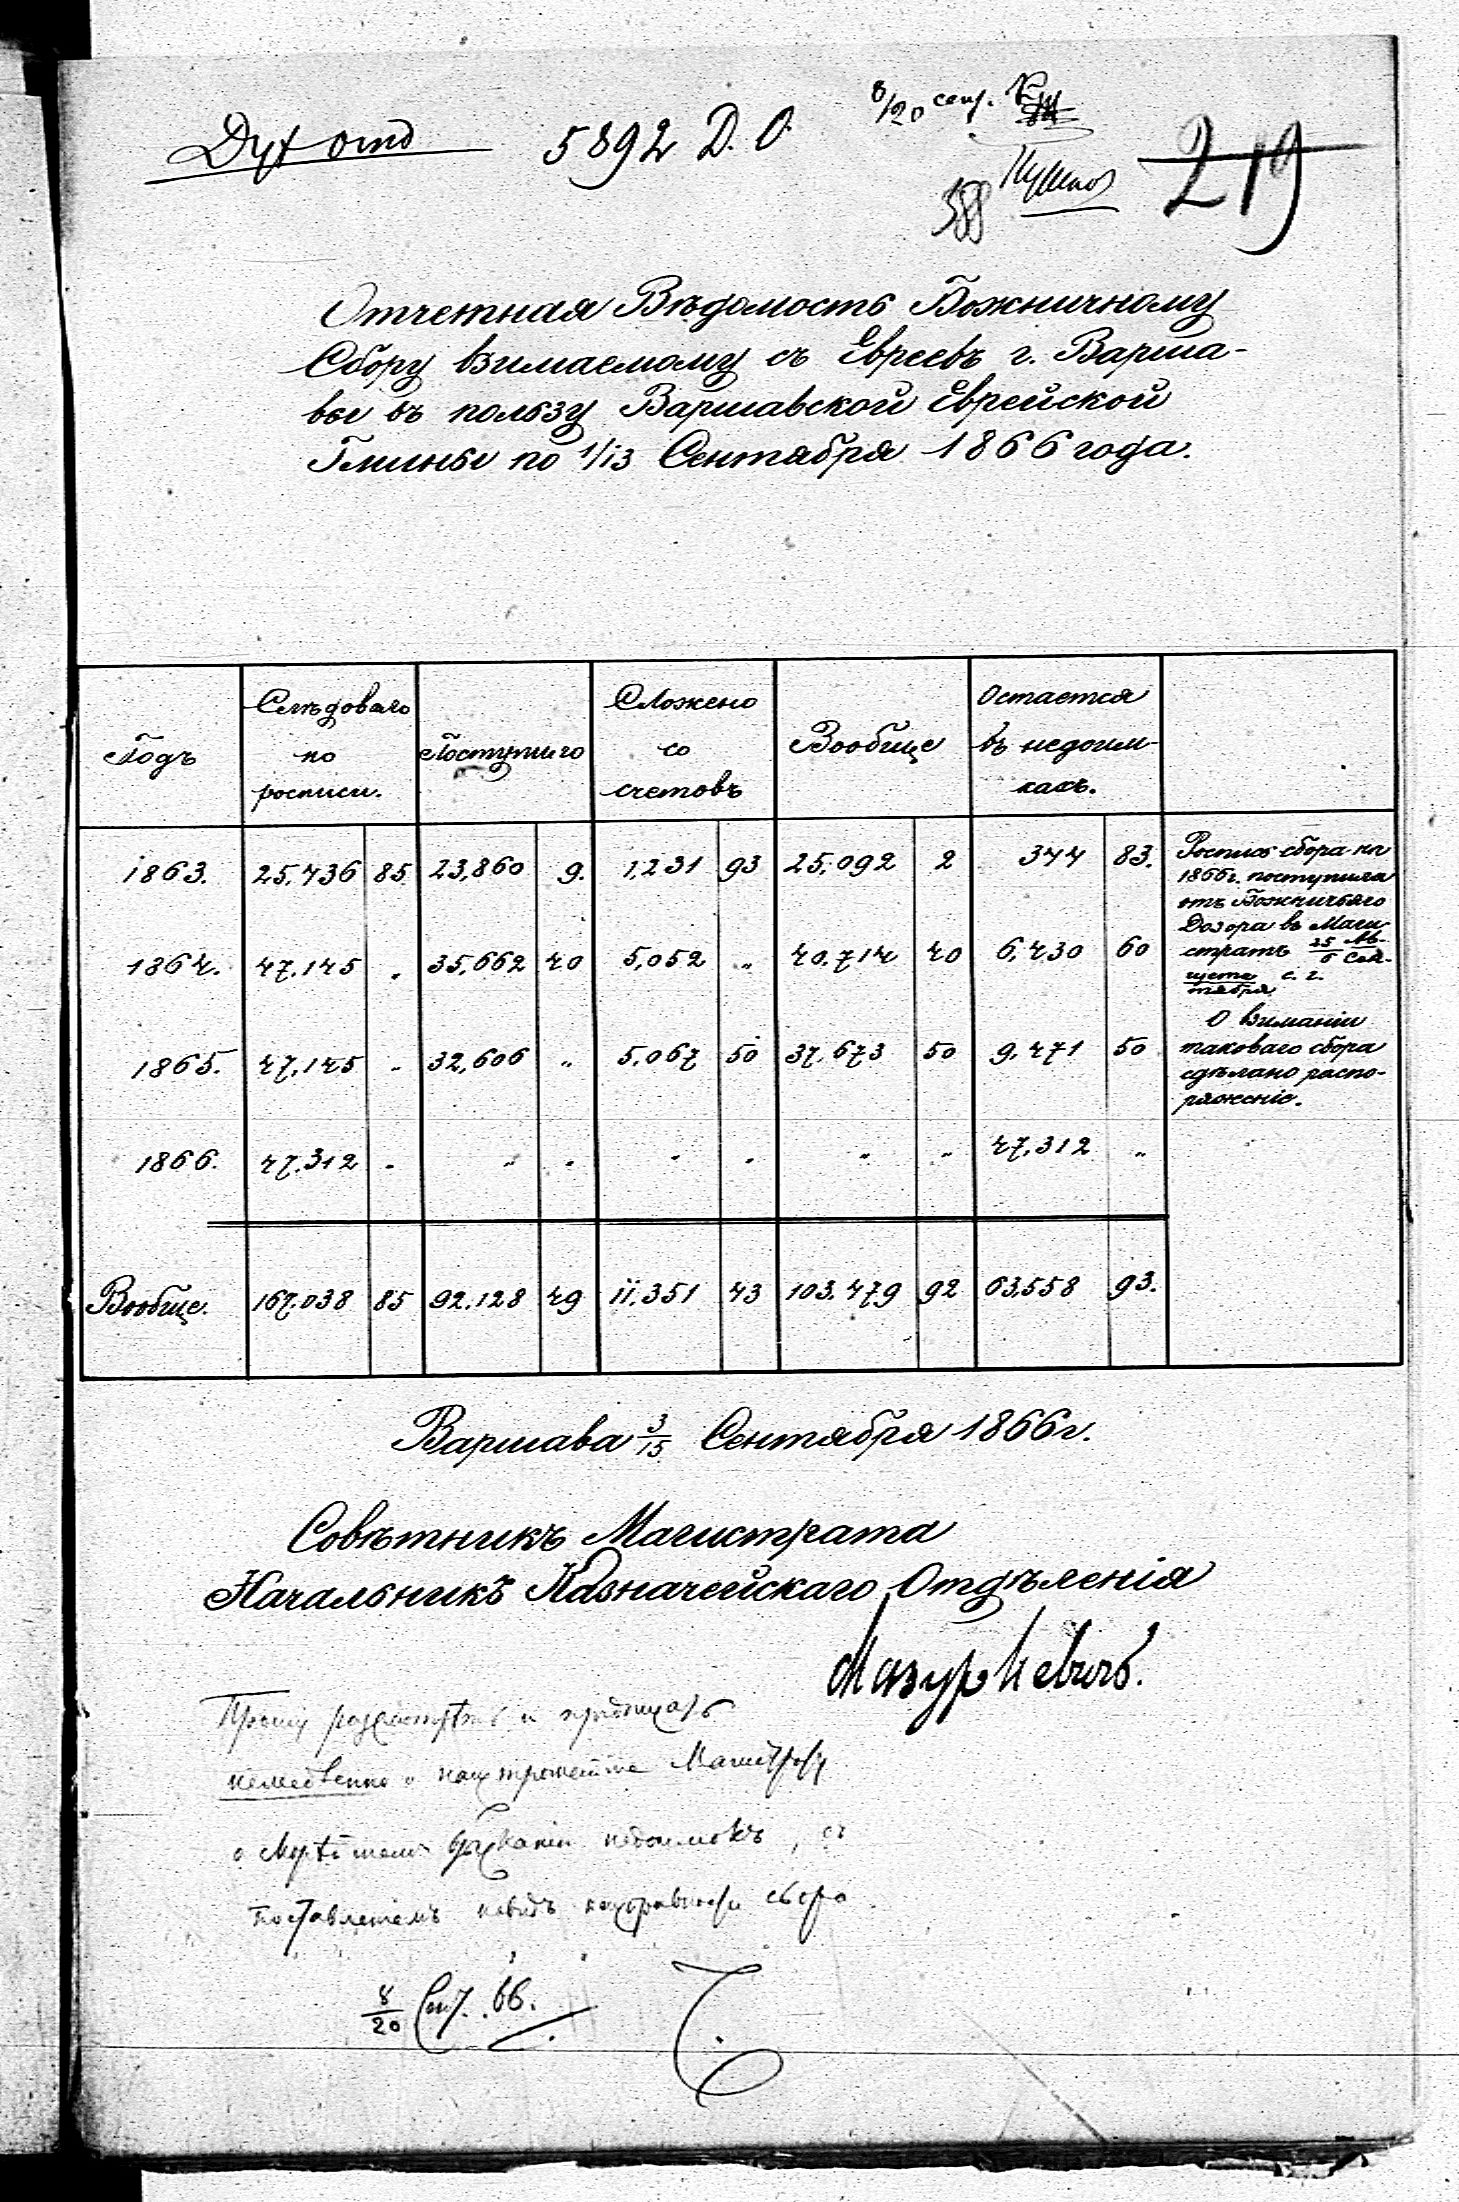 Дух отд 5892 Д. О. 8/20 сент.
219
Отчетная Вѣдомость Божничному
Сбору взимаемому съ Евреевъ г. Варша-
вы въ пользу Варшавской Еврейской
Гмины по 1/13 Сентября 1866 года.
Годъ | Слѣдовало по росписи. | Поступило | Сложено со счетовъ | Вообще | Остается въ недоим- кахъ.
1863. 25,436 85 23,860 9. 1,231 93 25,092 2 344 83.
1864. 47,145 „ 35,662 40 5,052 „ 40,714 40 6,430 60
1865. 47,145 „ 32,606 „ 5,067 50 37,673 50 9,471 50
1866. 47,312 „ „ „ „ „ „ „ 47,312 „
Вообще. 167,038 85 92,128 49 11,351 43 103,479 92 63,558 93.
Роспись сбора на
1866 г. поступила
отъ Божничьяго
Дозора въ Маги-
стратъ 25/6 Ав-
густа/Сен-
тября с. г.
О взиманіи
таковаго сбора
сдѣлано распо-
ряженіе.
Варшава 3/15 Сентября 1866 г.
Совѣтникъ Магистрата
Начальникъ Казначейскаго Отдѣленія
Мазуркевичъ.
Прошу разсмотрѣть и предписать
немедленно Магистрату
о взысканіи недоимокъ, съ
сбора
8/20 Сент. 66.